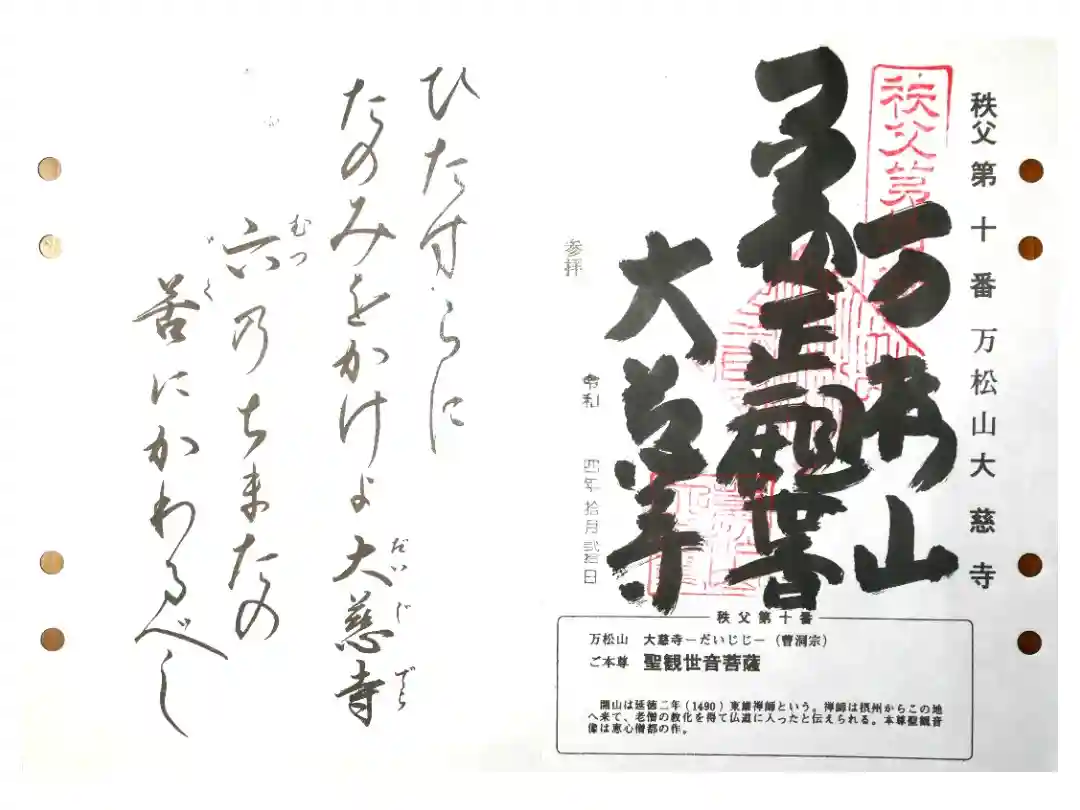 秩父第十番 万松山大慈寺
秩父第
万松山
聖観音
大慈寺
参拝
令和 四年 拾月 弐拾日
秩父第十番
万松山 大慈寺－だいじじ－（曹洞宗）
ご本尊 聖観世音菩薩
開山は延徳二年（1490）東雄禅師という。禅師は摂州からこの地
へ来て、老僧の教化を得て仏道に入ったと伝えられる。本尊聖観音
像は恵心僧都の作。
ひたすらに
たのみをかけよ大慈寺
だいじ でら
六乃ちまたの
むつ
苦にかわるべし
く